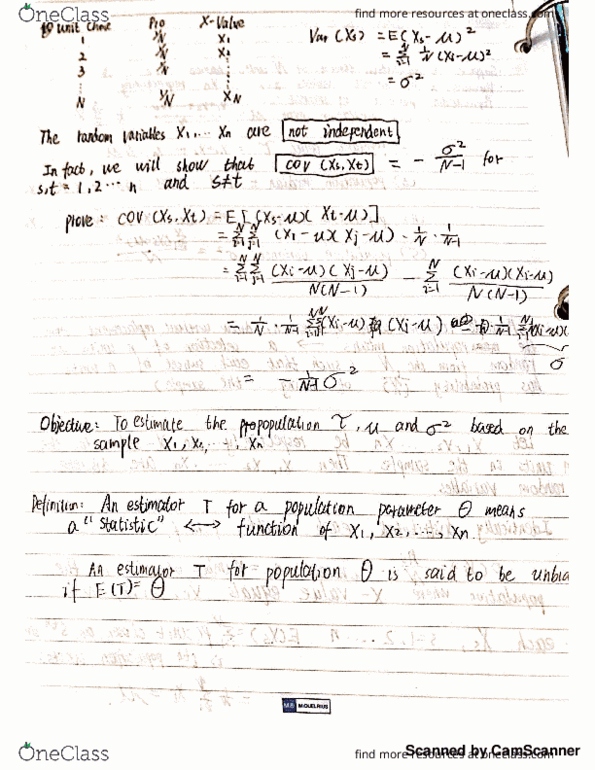 OneClass
find more resources at oneclass.com
unit Chose Pro X-Value
1 1/N X1
2 1/N X2
3
N 1/N XN
Var (Xs) = E(Xs - μ)²
= Σ 1/N (Xi-μ)²
= σ²
The random variables X1, ... Xn are not independent
In fact, we will show that COV (Xs, Xt) = - σ²/N-1 for
s,t = 1, 2 ... n and s≠t
prove: COV (Xs, Xt) = E[(Xs-μ)(Xt-μ)]
= ΣΣ (Xi-μ)(Xj-μ) · 1/N · 1/N-1
= ΣΣ (Xi-μ)(Xj-μ)/N(N-1) - Σ (Xi-μ)(Xi-μ)/N(N-1)
= 1/N · 1/N-1 (Xi-μ) (Xj-μ)
= - 1/N-1 σ²
Objective: To estimate the population τ, μ and σ² based on the
sample X1, X2, ..., Xn
Definition: An estimator T for a population parameter θ means
a "statistic" ↔ function of X1, X2, ..., Xn
An estimator T for population θ is said to be unbia
if E(T) = θ
OneClass
find more resources at oneclass.com
Scanned by CamScanner